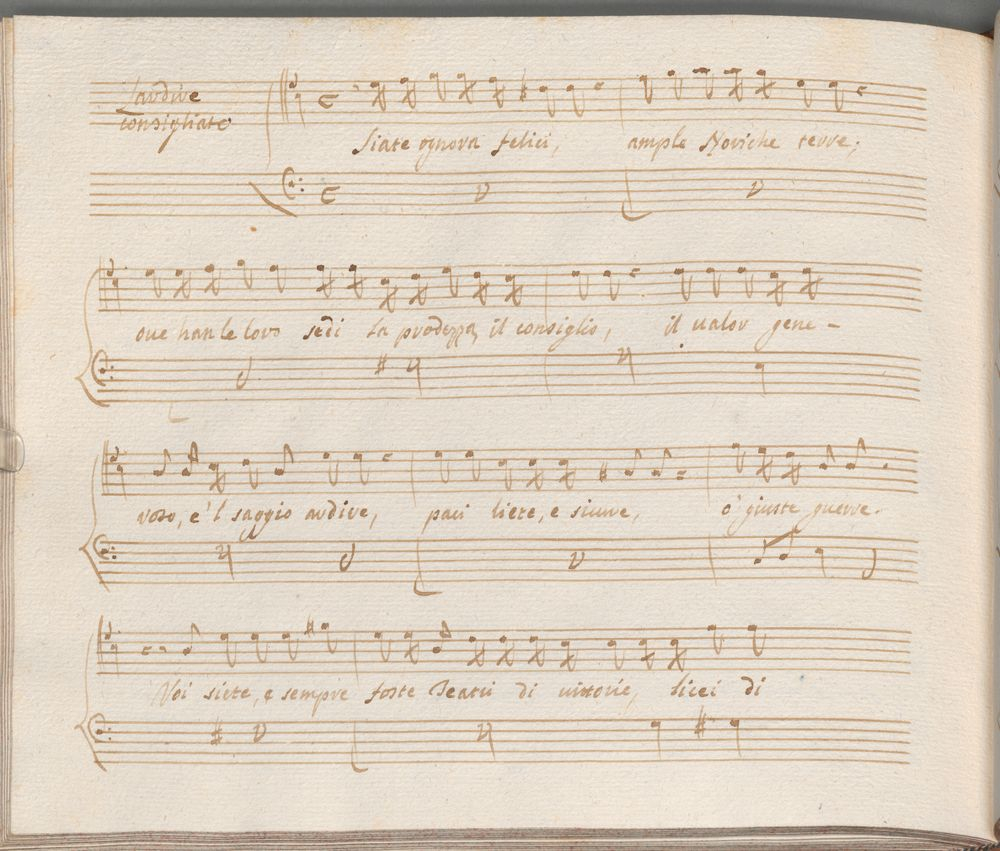 L'ardire
consigliato
Siate ognora felici, ample Noriche terre,
oue han le loro sedi la prodezza, il consiglio, il ualor gene-
roso, e'l saggio ardire, paci liete, e sicure, ò giuste guerre.
Voi siete, e sempre foste Teatri di uittorie, licei di